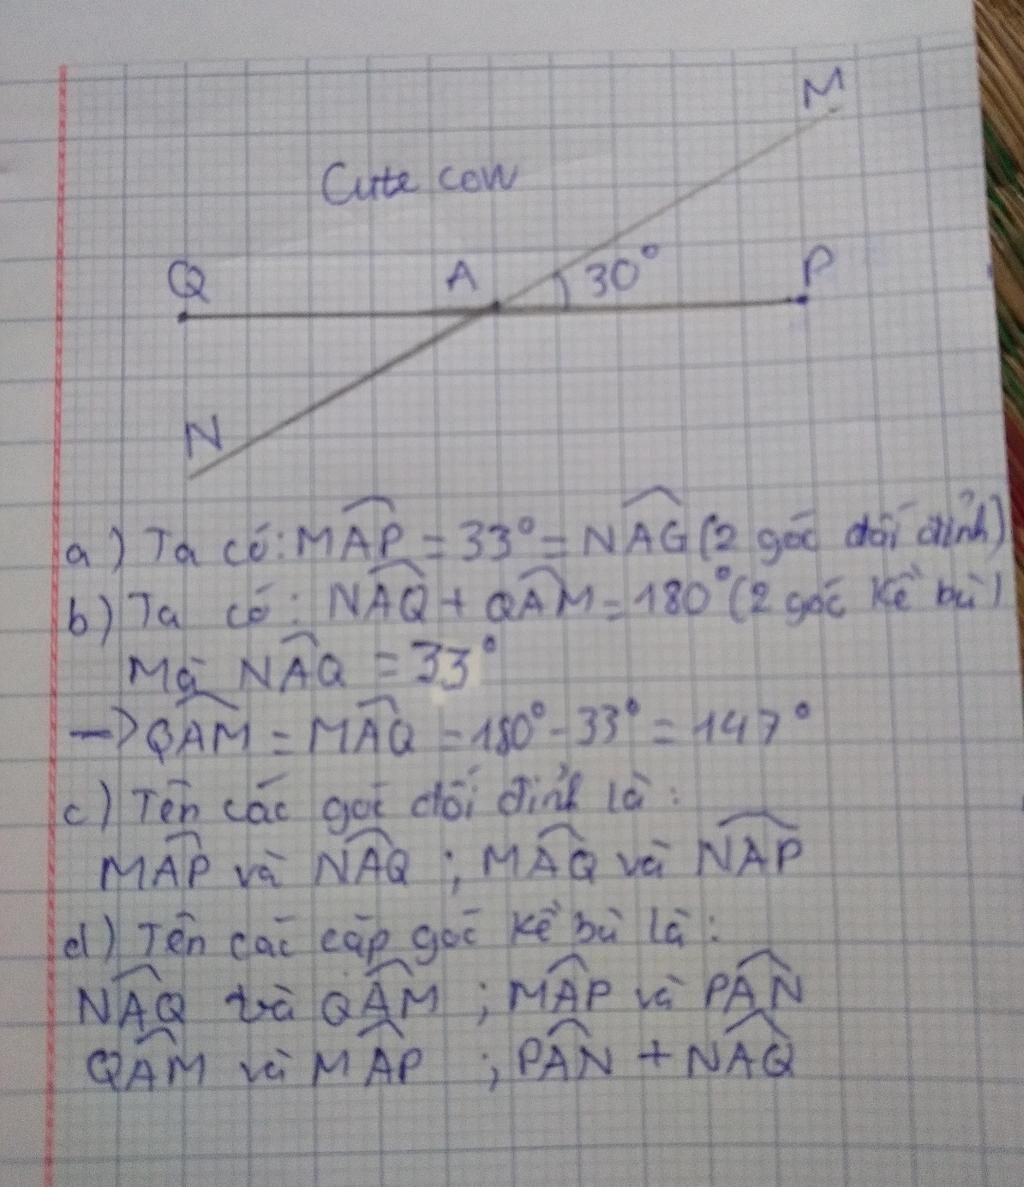 M
Cute cow
Q A 30° P
N
a) Ta có: MAP = 33° = NAG (2 góc đối đỉnh)
b) Ta có: NAQ + QAM = 180° (2 góc kề bù)
Mà NAQ = 33°
→ QAM = MAQ = 180° - 33° = 147°
c) Tên các góc đối đỉnh là:
MAP và NAQ ; MAQ và NAP
d) Tên các cặp góc kề bù là:
NAQ và QAM ; MAP và PAN
QAM và MAP ; PAN + NAQ